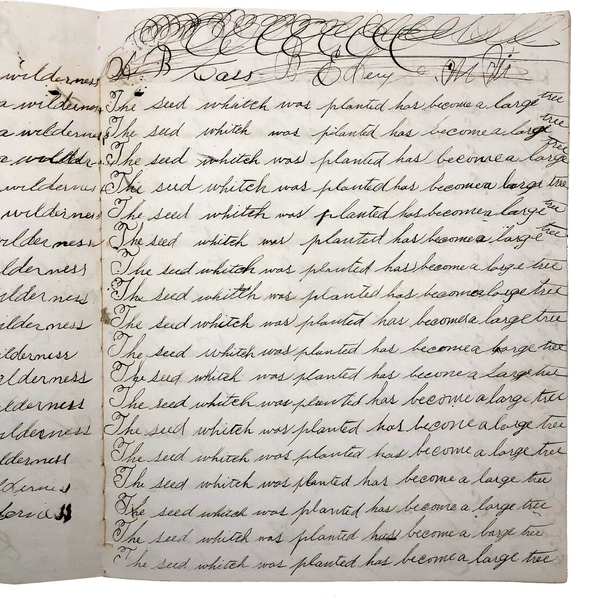 wilderness
a wilderness
a wilderness
a wilder
wilderness
wilderness
wilderness
ilderness
ilderness
ilderness
ilderness
ilderness
ilderness
ilderness
ilderness
lderness
derness
B Cass B
The seed whatch was planted has become a large tree
The seed whitch was planted has become a large tree
The seed whitch was planted has become a large tree
The seed whitch was planted has become a large tree
The seed whitch was planted has become a large tree
The seed whitch was planted has become a large tree
The seed whitch was planted has become a large tree
The seed whitch was planted has become a large tree
The seed whitch was planted has become a large tree
The seed whitch was planted has become a large tree
The seed whitch was planted has become a large tree
The seed whitch was planted has become a large tree
The seed whitch was planted has become a large tree
The seed whitch was planted has become a large tree
The seed whitch was planted has become a large tree
The seed whitch was planted has become a large tree
The seed whitch was planted has become a large tree
The seed whitch was planted has become a large tree